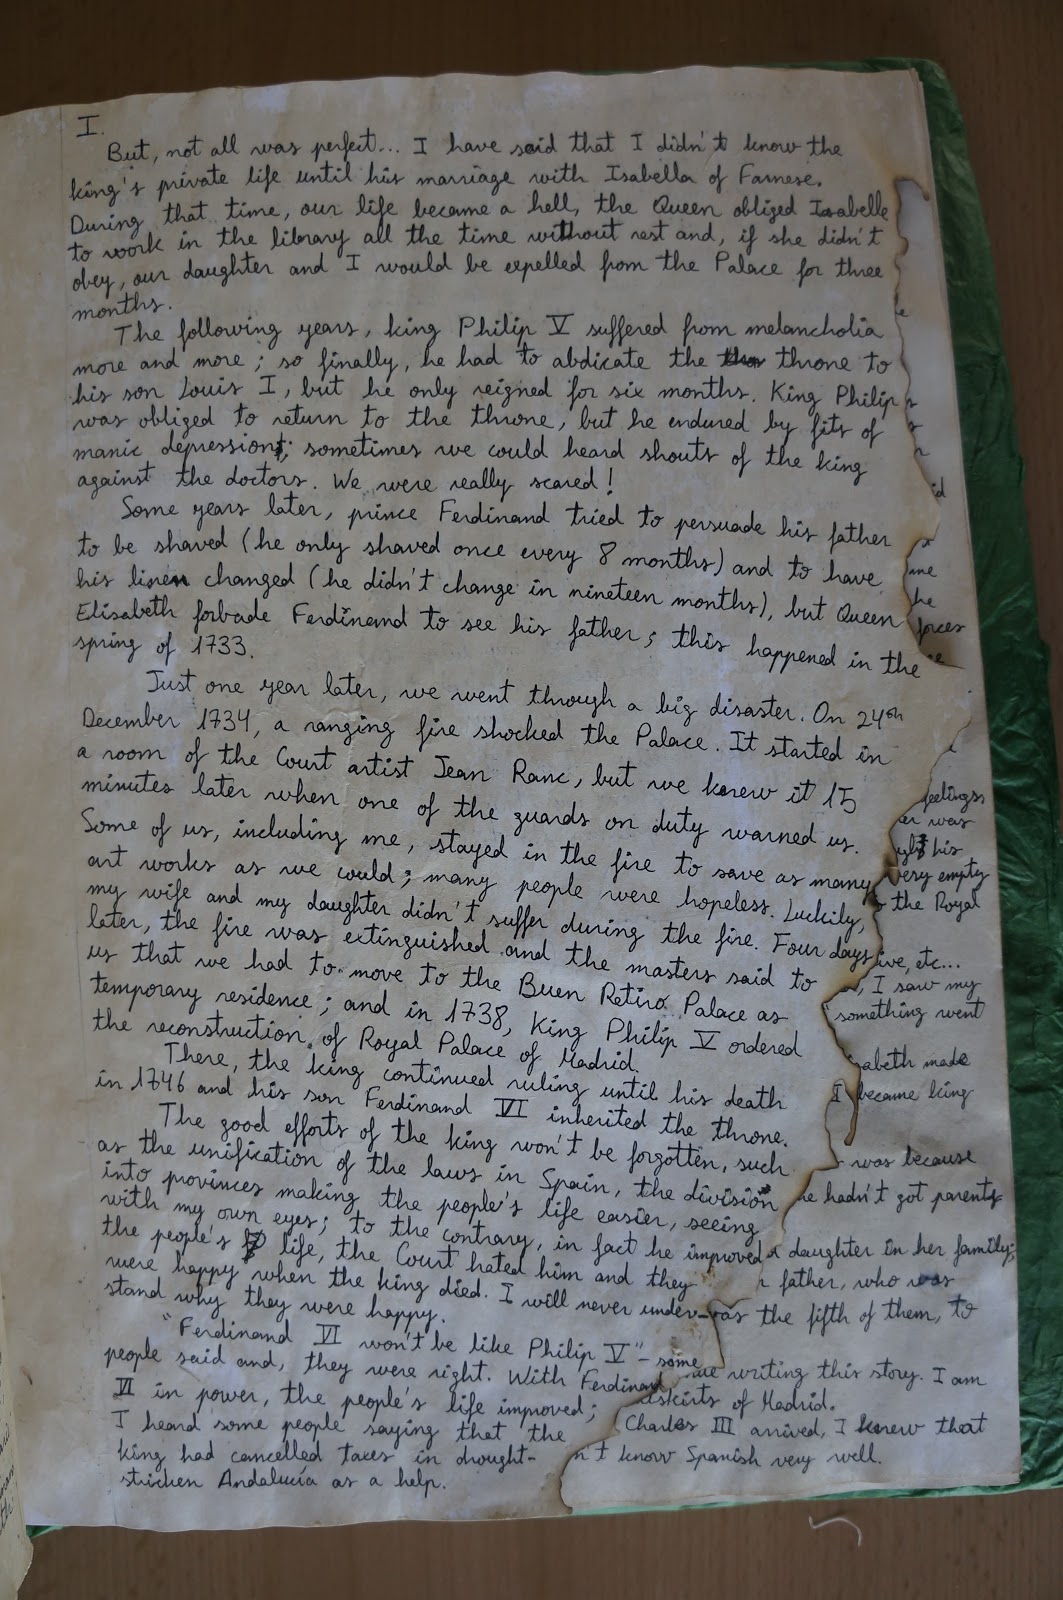 I.
But, not all was perfect... I have said that I didn't know the
king's private life until his marriage with Isabella of Farnese.
During that time, our life became a hell, the Queen obliged Isabelle
to work in the library all the time without rest and, if she didn't
obey, our daughter and I would be expelled from the Palace for three
months.
The following years, king Philip V suffered from melancholia
more and more; so finally, he had to abdicate the throne to
his son Louis I, but he only reigned for six months. King Philip
was obliged to return to the throne, but he endured by fits of
manic depression; sometimes we could heard shouts of the king
against the doctors. We were really scared!
Some years later, prince Ferdinand tried to persuade his father
to be shaved (he only shaved once every 8 months) and to have
his linen changed (he didn't change in nineteen months), but Queen
Elisabeth forbade Ferdinand to see his father; this happened in the
spring of 1733.
Just one year later, we went through a big disaster. On 24th
December 1734, a ranging fire shocked the Palace. It started in
a room of the Court artist Jean Ranc, but we knew it 15
minutes later when one of the guards on duty warned us.
Some of us, including me, stayed in the fire to save as many
art works as we could; many people were hopeless. Luckily,
my wife and my daughter didn't suffer during the fire. Four days
later, the fire was extinguished and the masters said to
us that we had to move to the Buen Retiro Palace as
temporary residence; and in 1738, King Philip V ordered
the reconstruction of Royal Palace of Madrid.
There, the king continued ruling until his death
in 1746 and his son Ferdinand VI inherited the throne.
The good efforts of the king won't be forgotten, such
as the unification of the laws in Spain, the division
into provinces making the people's life easier, seeing
with my own eyes; to the contrary, in fact he improved
the people's life, the Court hated him and they
were happy when the king died. I will never under-
stand why they were happy.
"Ferdinand VI won't be like Philip V" - some
people said and, they were right. With Ferdinand
VI in power, the people's life improved;
I heard some people saying that the
king had cancelled taxes in drought-
stricken Andalucía as a help.
feelings
was
his
very empty
the Royal
etc...
I saw my
something went
made
I became king
was because
hadn't got parents
daughter in her family;
father, who was
the fifth of them, to
writing this story. I am
of Madrid.
Charles III arrived, I knew that
know Spanish very well.